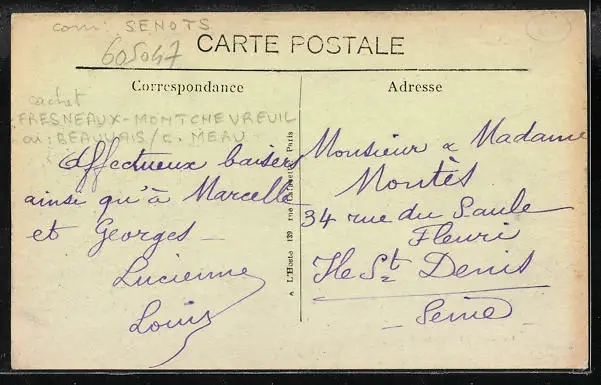 com: SENOTS
605047
CARTE POSTALE
Correspondance
Adresse
cachet
FRESNEAUX-MONTCHEVREUIL
ou: BEAUVAIS/C. MERU
Affectueux baisers
ainsi qu'à Marcelle
et Georges -
Lucienne
Louis
L'Hoste 139, rue Lafayette, Paris
Monsieur & Madame
Montès
34 rue du Saule
Fleuri
Ile St Denis
- Seine -